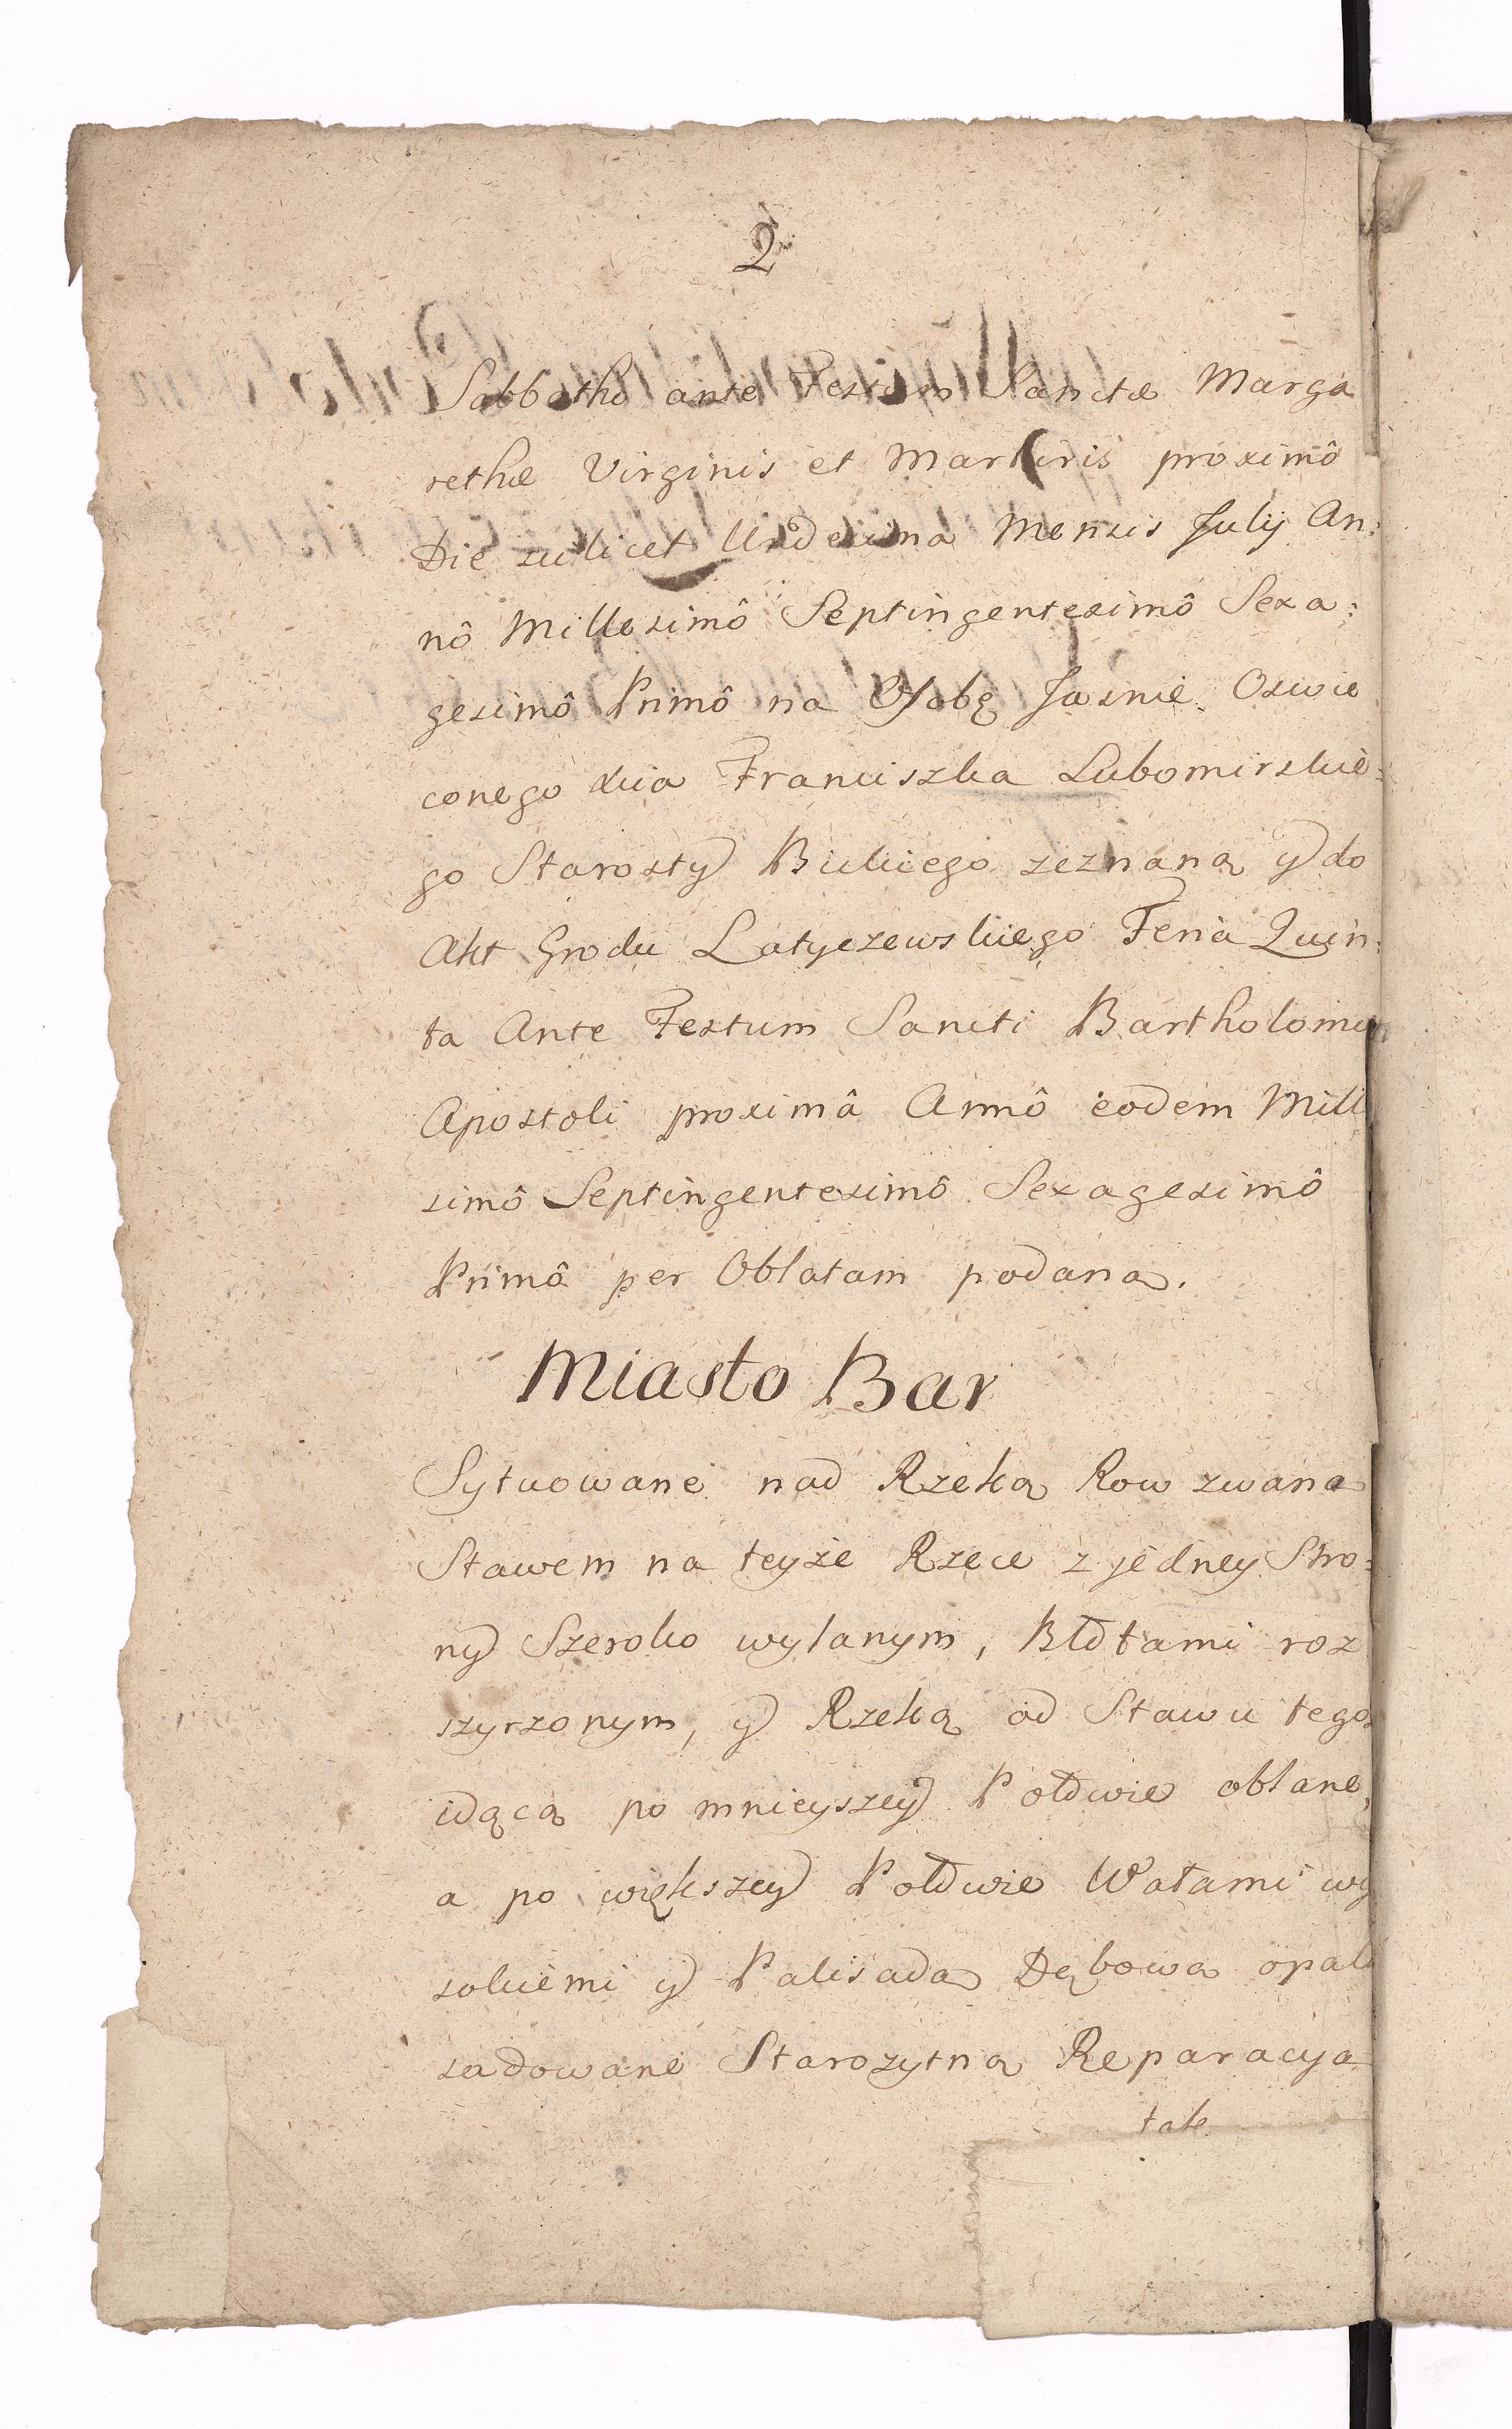 2
Sabbatho ante Festum Sanctæ Marga
rethæ Virginis et Martiris proximô
Die scilicet Undecima Mensis July An:
nô Millesimô Septingentesimô Sexa:
gesimô Primô na Osobę Jasnie Oswie
conego Xcia Franciszka Lubomirskie:
go Starosty Bickiego zeznaną y do
Akt Grodu Latyczewskiego Feria Quin:
ta Ante Festum Sancti Bartholomei
Apostoli proximâ Annô eodem Mille
simô Septingentesimô Sexagesimô
Primô per Oblatam podaną.
Miasto Bar
Sytuowane nad Rzeką Row zwaną
Stawem na teyże Rzece z jedney Stro:
ny Szeroko wylanym, Błotami roz
szyrzonym, y Rzeką od Stawu tego
idącą po mnieyszey Połowie oblane,
a po większey Połowie Wałami wy
sokiemi y Palisadą Dębową opali
sadowane Starożytną Reparacyą
tak